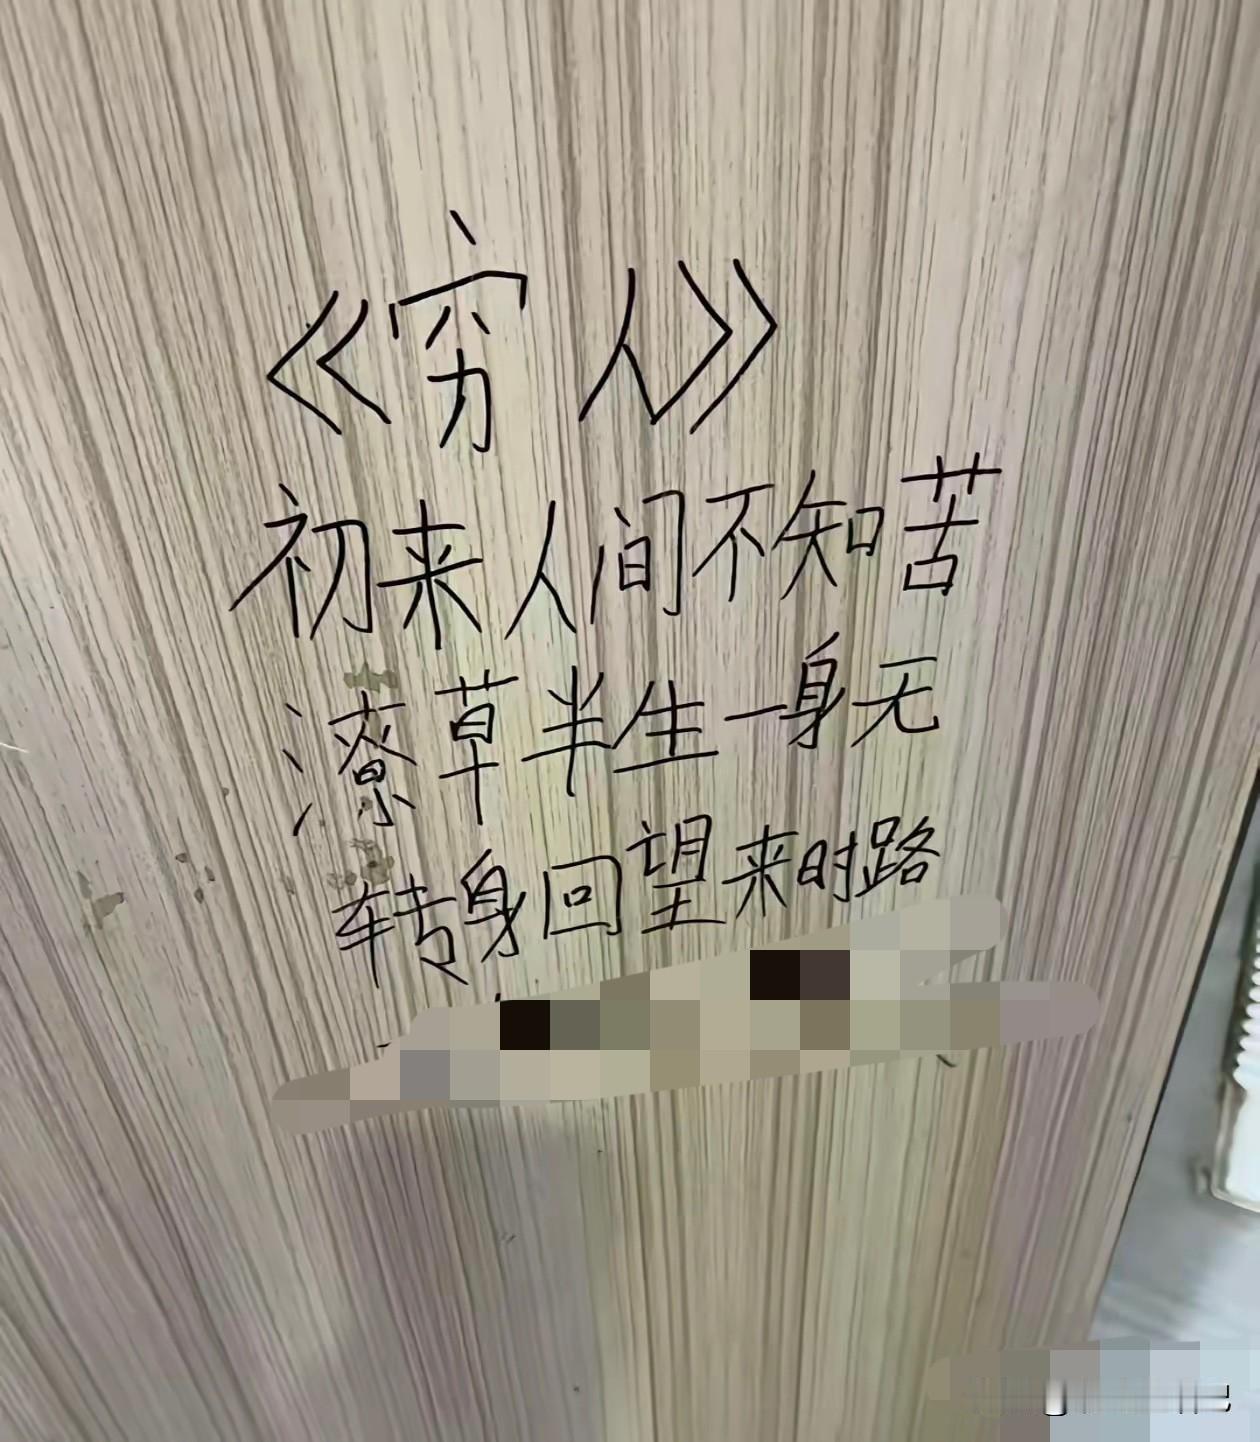 《穷人》
初来人间不知苦
潦草半生一身无
转身回望来时路